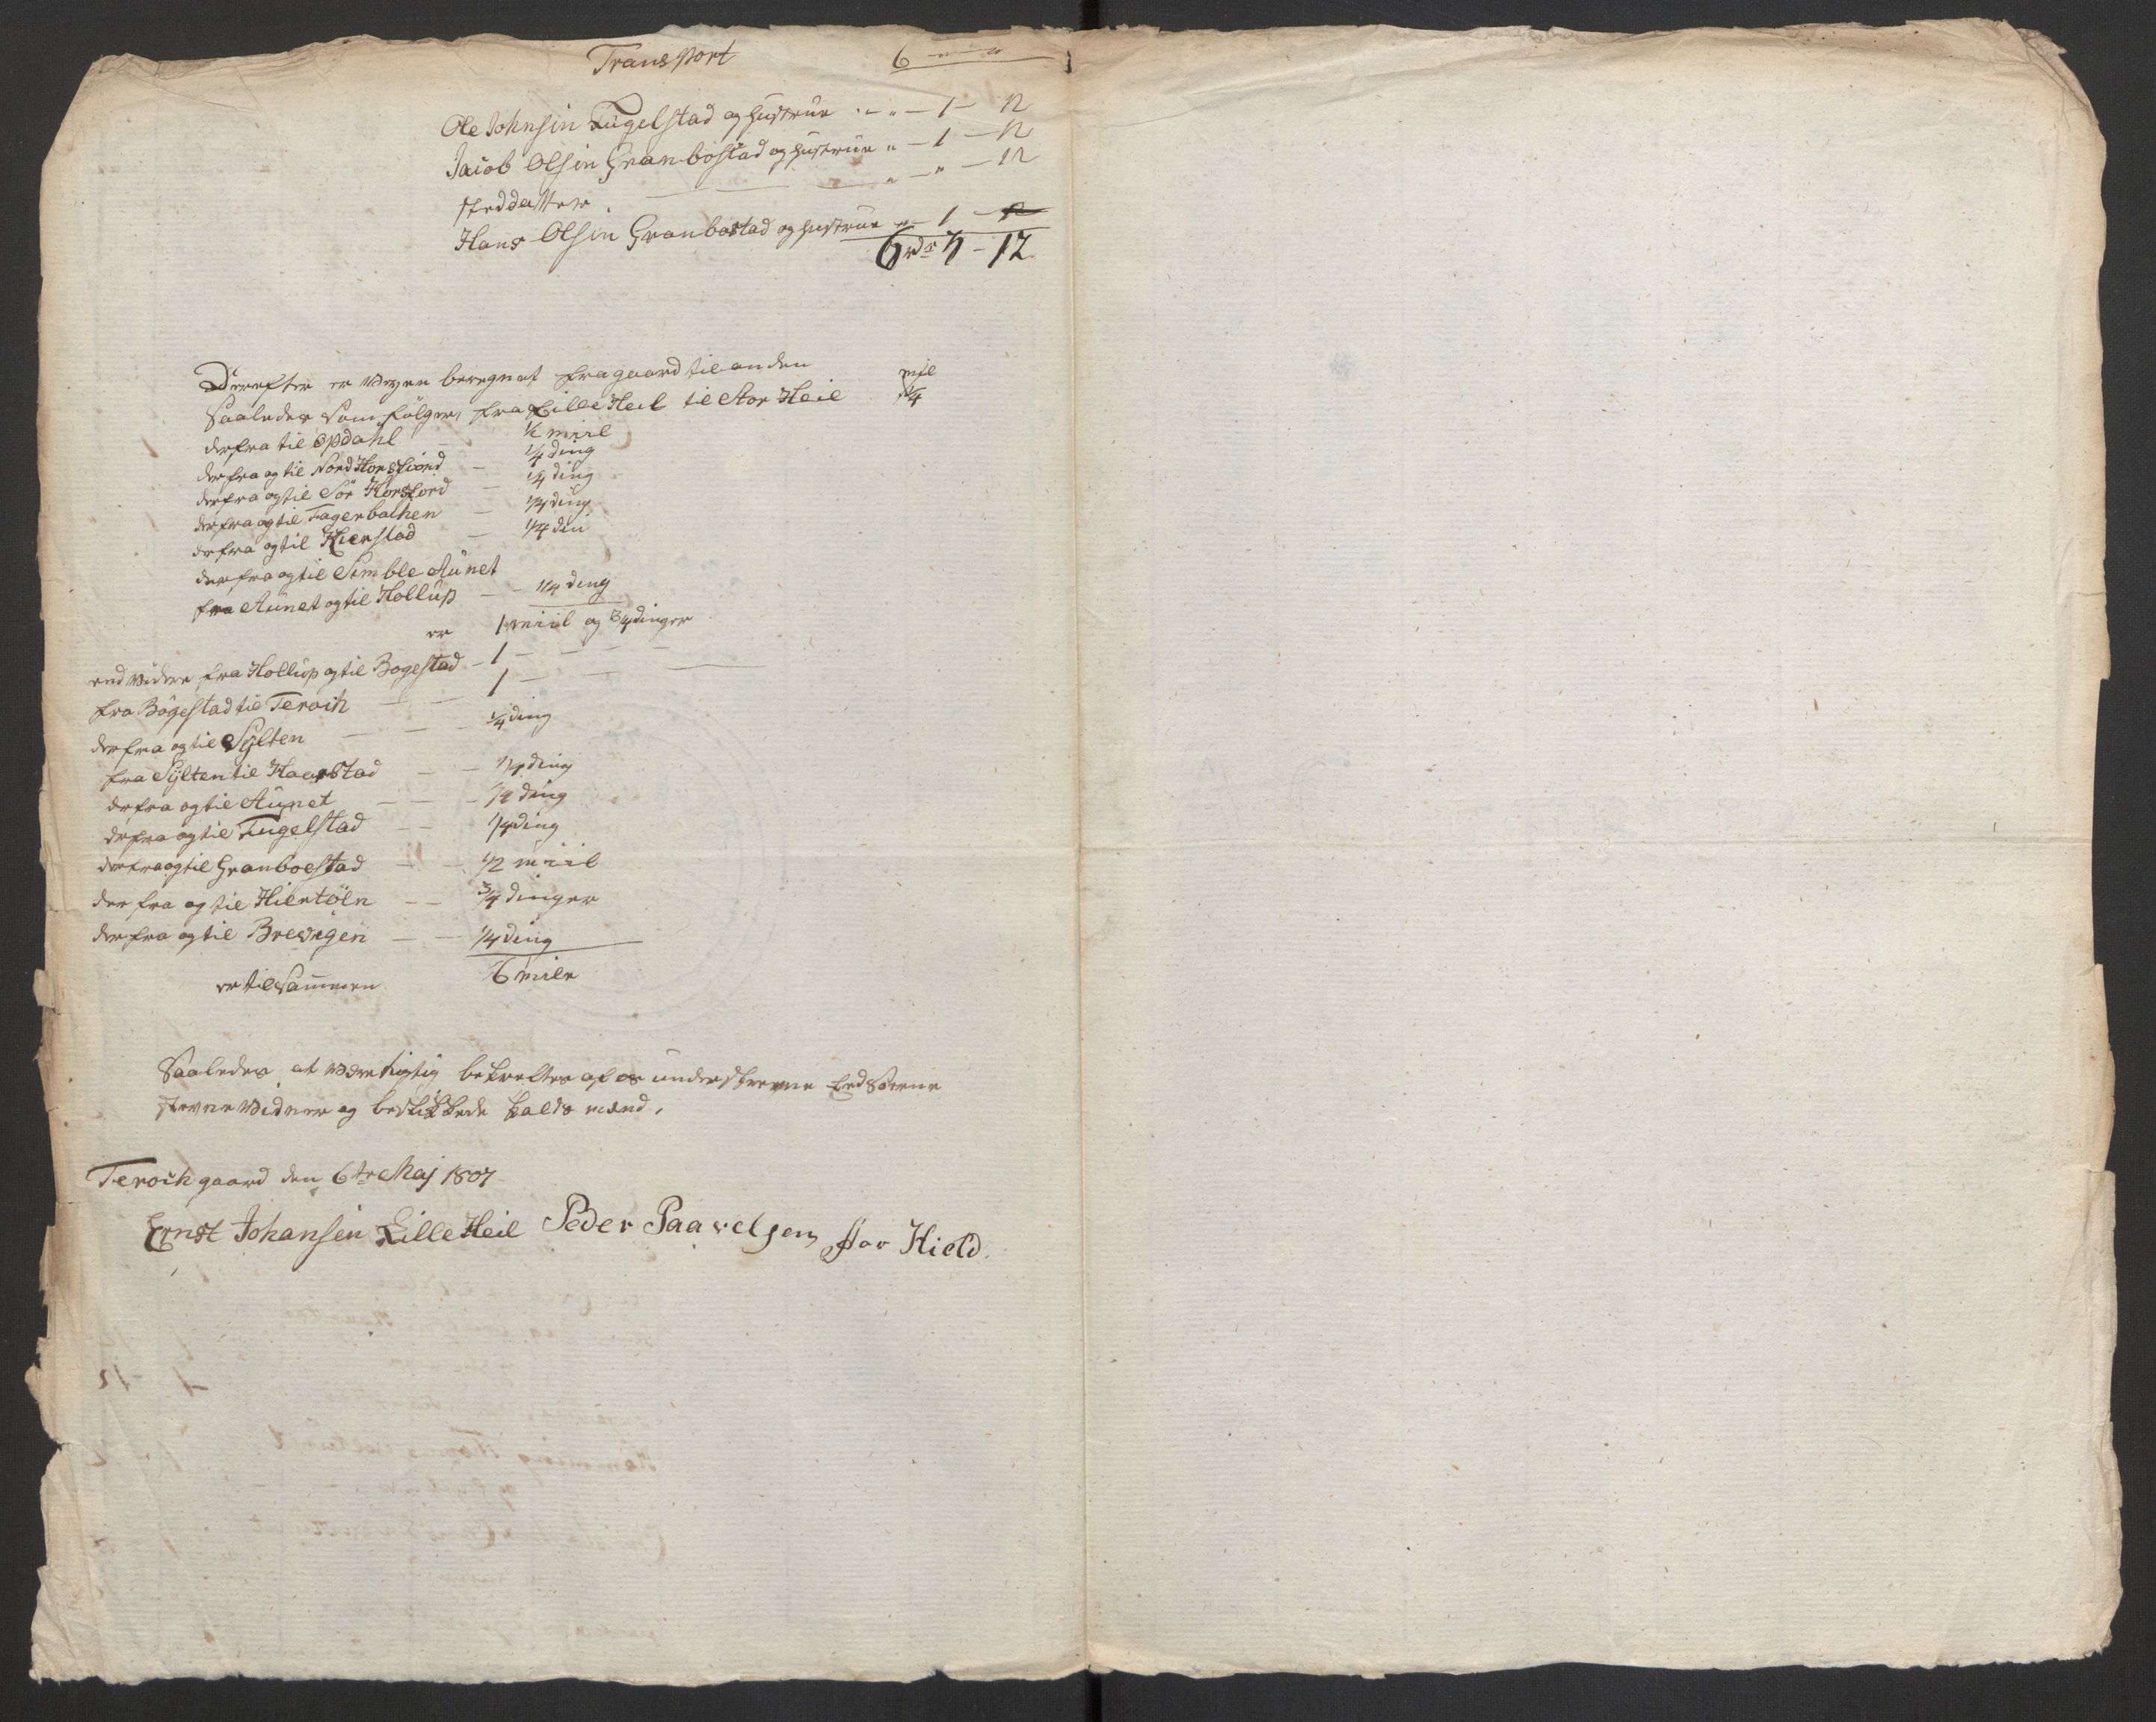 Transport 6 — " — "
Ole Johnsin Fugelstad og Hustrue " — " — 1 — 12
Jacob Olsin Granbostad og Hustrue " — 1 — 12
Steddatter — — — " — " — 12
Hans Olsin Granbostad og Hustrue " — 1 — 12
6 rdr 5 — 12
Derefter er Veyen beregnet fra gaard til anden miil
Saaledes som følger, fra Lille Heil til Stor Heil 1/4
derfra til Opdahl — 1/2 miil
derfra og til Nord Horsfiord — 1/4 ding
derfra og til Sør Horsfiord — 1/4 ding
derfra og til Fagerbachen — 1/4 ding
derfra og til Hierstad — 1/4 din
derfra og til Simble Aunet
fra Aunet og til Hollup — — 1/4 ding
er 1 miil og 3/4 dinger
end videre fra Hollup og til Bogestad — 1 — — — —
fra Bogestad til Teroih — — 1 — —
derfra og til Sylten — — — 1/4 ding
fra Sylten til Haarstad — — 1/4 ding
derfra og til Aunet — — — 1/4 ding
derfra og til Fugelstad — — 1/4 ding
derfra og til Granboestad — — 1/2 miil
derfra og til Hiertøln — — 3/4 dinger
derfra og til Brevigen — — 1/4 ding
er tilsammen 6 mile
Saaledes at være rigtig bekreftes af os underskrevne Eedsorne
Stevne Vidner og beskikkede Kalds mænd.
Teroih gaard den 6te Maj 1807
Ernst Johansin Lille Heil Peder Paavelsen stor Hield.